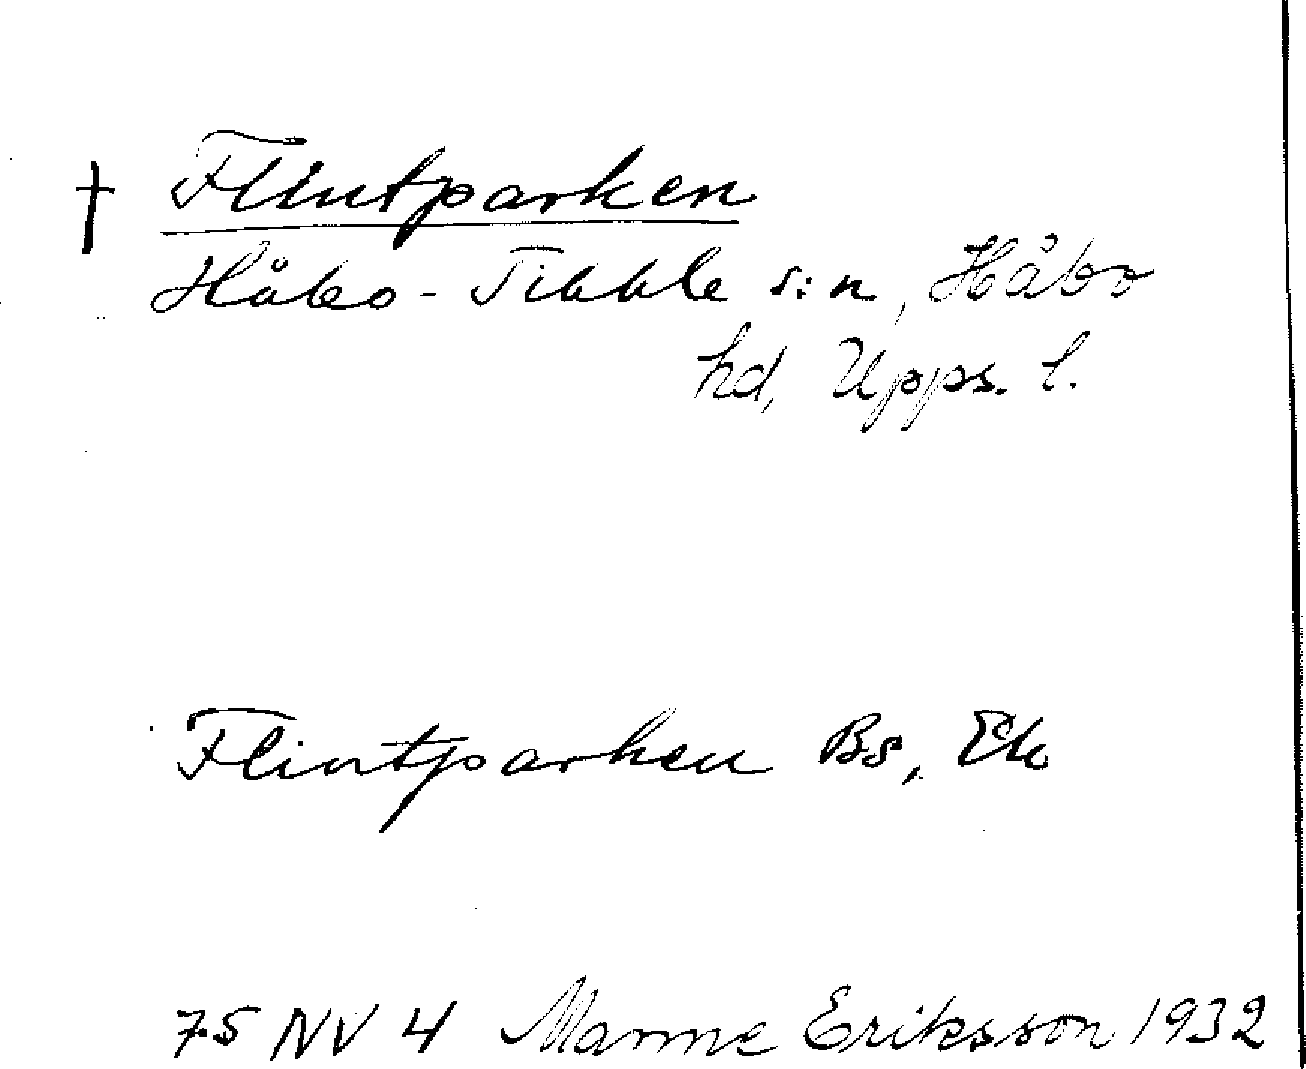 † Flintparken
Håbo-Tibble s:n, Håbo
hd, Upps. l.
Flintparken Bs, Ek
75 NV 4 Manne Eriksson 1932